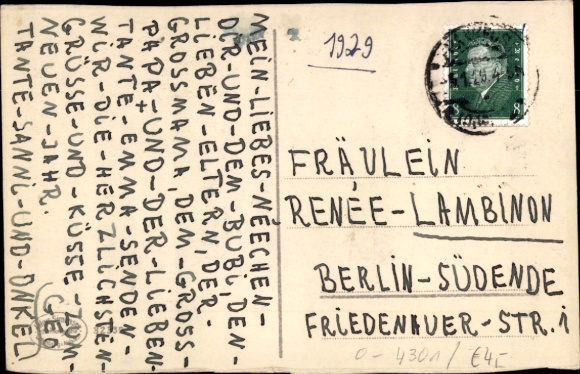 MEIN-LIEBES-NÉECHEN-
DIR-UND-DEM-BUBI, DEN-
LIEBEN-ELTERN, DER-
GROSSMAMA, DEM-GROSS-
PAPA+UND-DER-LIEBEN-
TANTE-EMMA-SENDEN-
WIR-DIE-HERZLICHSTEN-
GRÜSSE-UND-KÜSSE-ZUM-
NEUEN-JAHR.
GEO
TANTE-SANNI-UND-ONKEL.
1929
FRÄULEIN
RENÉE-LAMBINON
BERLIN-SÜDENDE
FRIEDENAUER-STR. 1
0-4301/€4,-